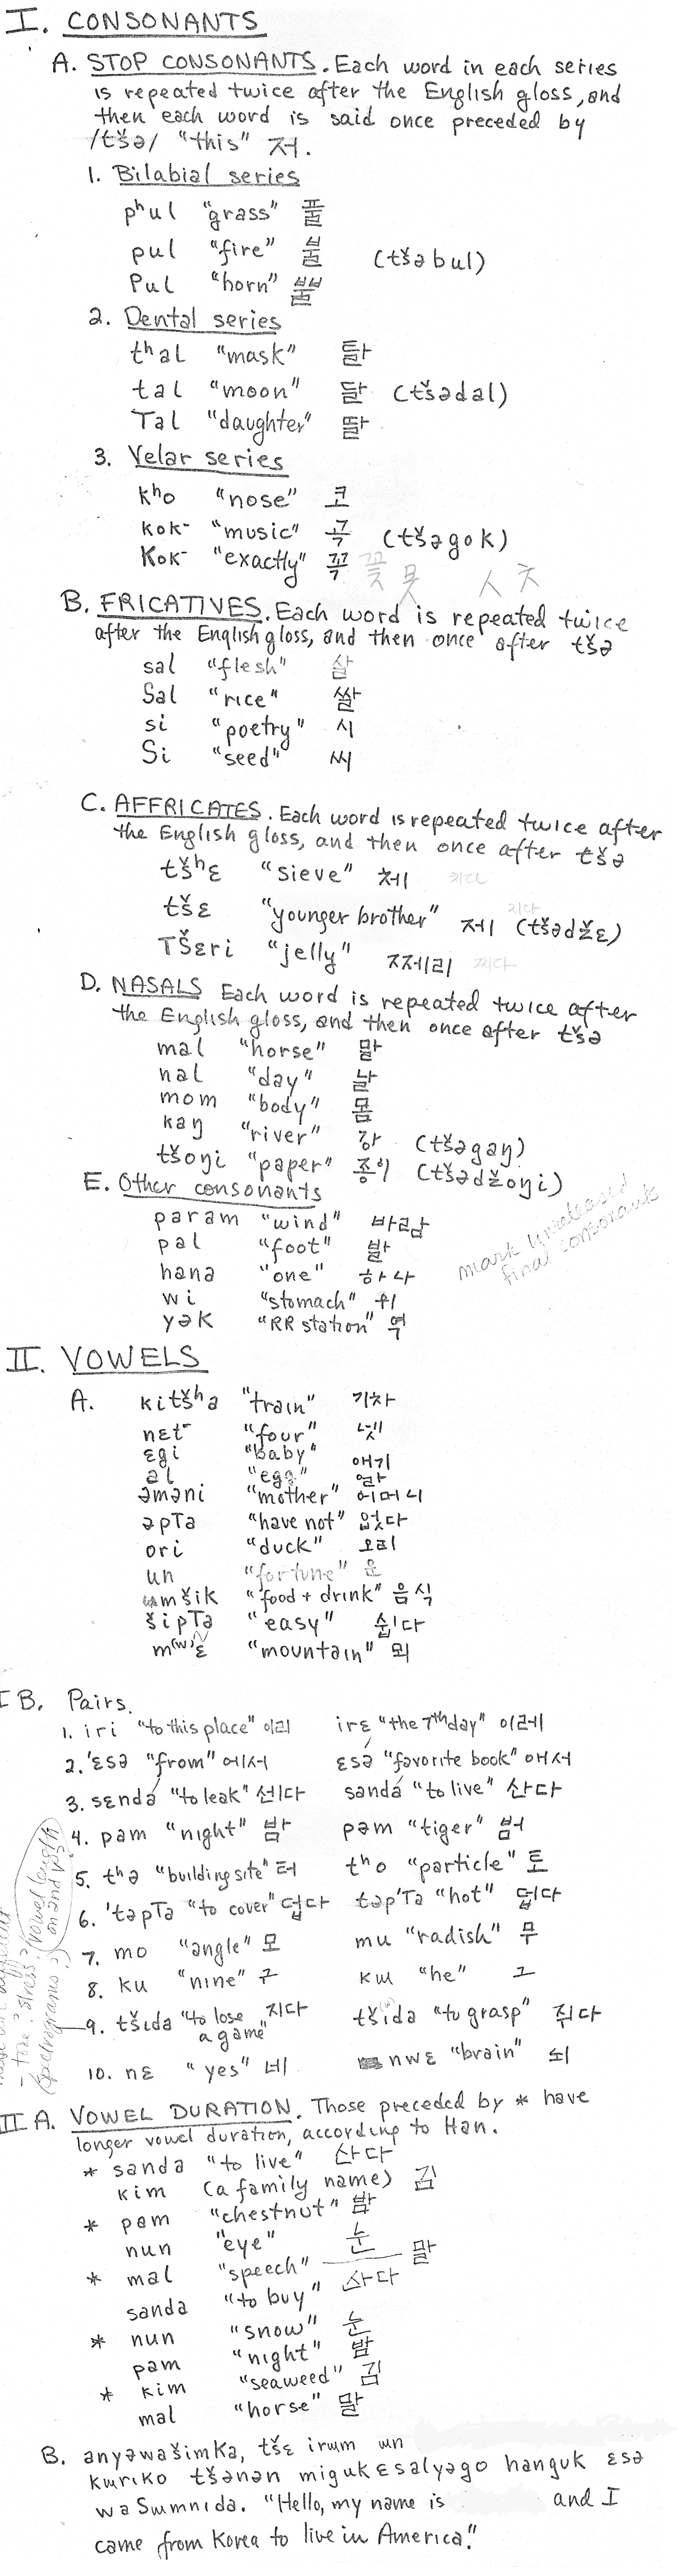 I. CONSONANTS
A. STOP CONSONANTS. Each word in each series
is repeated twice after the English gloss, and
then each word is said once preceded by
/tšə/ "this" 저.
1. Bilabial series
pʰul "grass" 풀
pul "fire" 불 (tšəbul)
Pul "horn" 뿔
2. Dental series
tʰal "mask" 탈
tal "moon" 달 (tšədal)
Tal "daughter" 딸
3. Velar series
kʰo "nose" 코
kok⁻ "music" 곡 (tšəgok)
Kok⁻ "exactly" 꼭 꽃 못 ㅅ ㅊ
B. FRICATIVES. Each word is repeated twice
after the English gloss, and then once after tšə
sal "flesh" 살
Sal "rice" 쌀
si "poetry" 시
Si "seed" 씨
C. AFFRICATES. Each word is repeated twice after
the English gloss, and then once after tšə
tšʰɛ "sieve" 체 치다
tšɛ "younger brother" 제 (tšədžɛ) 지다
TŠɛri "jelly" 쩨리 찌다
D. NASALS Each word is repeated twice after
the English gloss, and then once after tšə
mal "horse" 말
nal "day" 날
mom "body" 몸
kaŋ "river" 강 (tšəgaŋ)
tšoŋi "paper" 종이 (tšədžoŋi)
E. Other consonants
param "wind" 바람
pal "foot" 발
hana "one" 하나
wi "stomach" 위
yək "RR station" 역
mark unreleased
final consonants
II. VOWELS
A. kitšʰa "train" 기차
nɛt⁻ "four" 넷
ɛgi "baby" 애기
al "egg" 알
əməni "mother" 어머니
əpTa "have not" 없다
ori "duck" 오리
un "fortune" 운
ɯmšik "food + drink" 음식
šipTa "easy" 쉽다
m(w)ɛ "mountain" 뫼
I B. Pairs.
1. iri "to this place" 이리 irɛ "the 7th day" 이레
2. 'ɛsə "from" 에서 ɛsə́ "favorite book" 애서
3. sɛndá "to leak" 센다 sandá "to live" 산다
4. pam "night" 밤 pəm "tiger" 범
5. tʰə "building site" 터 tʰo "particle" 토
6. 'təpTa "to cover" 덥다 təp'Ta "hot" 덥다
7. mo "angle" 모 mu "radish" 무
8. ku "nine" 구 kɯ "he" 그
9. tšida "to lose a game" 지다 tšida "to grasp" 쥐다
10. nɛ "yes" 네 nwɛ "brain" 뇌
II A. VOWEL DURATION. Those preceded by * have
longer vowel duration, according to Han.
* sanda "to live" 산다
kim (a family name) 김
* pam "chestnut" 밤
nun "eye" 눈
* mal "speech" 말
sanda "to buy" 산다
* nun "snow" 눈
pam "night" 밤
* kim "seaweed" 김
mal "horse" 말
B. anyəwašimKa, tšɛ irum un
kuriko tšənən migukɛsalyəgo hanguk ɛsə
waSumnida. "Hello, my name is and I
came from Korea to live in America".